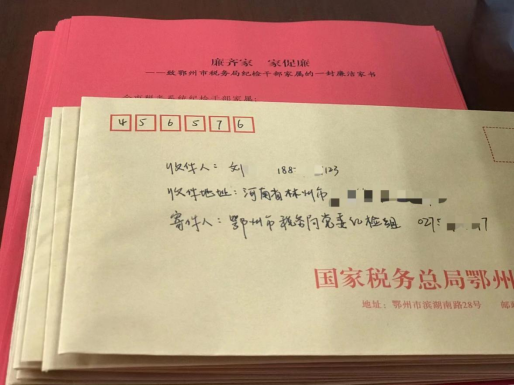 廉齐家 家促廉
——致鄂州市税务局纪检干部家属的一封廉洁家书
456576
收件人：刘 188 123
收件地址：河南省林州市
寄件人：鄂州市税务局党委纪检组 027 7
国家税务总局鄂州
地址：鄂州市滨湖南路28号 邮